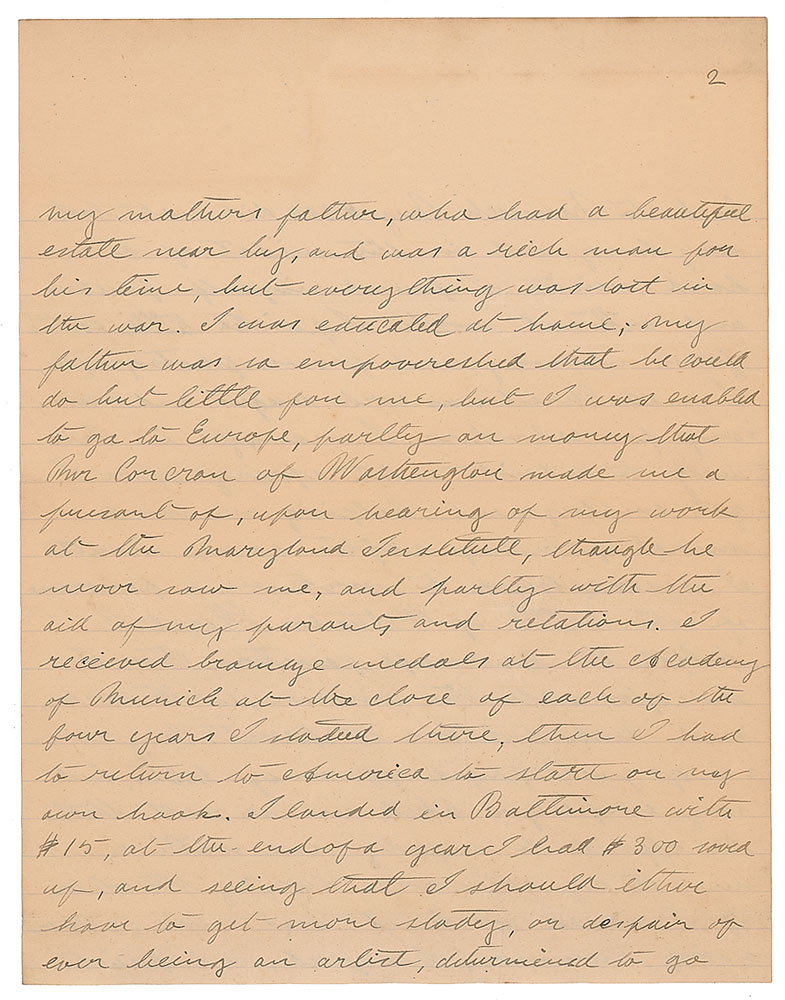 2
my mothers father, who had a beautiful
estate near by, and was a rich man for
his time, but everything was lost in
the war. I was educated at home; my
father was so empovereshed that he could
do but little for me, but I was enabled
to go to Europe, partly on money that
Mr Corcran of Washington made me a
present of, upon hearing of my work
at the Maryland Institute, though he
never saw me, and partly with the
aid of my parents and relations. I
received bronze medals at the Academy
of Munich at the close of each of the
four years I studied there, then I had
to return to America to start on my
own hook. I landed in Baltimore with
$15, at the end of a year I had $300 saved
up, and seeing that I should either
have to get more study, or despair of
ever being an artist, determined to go